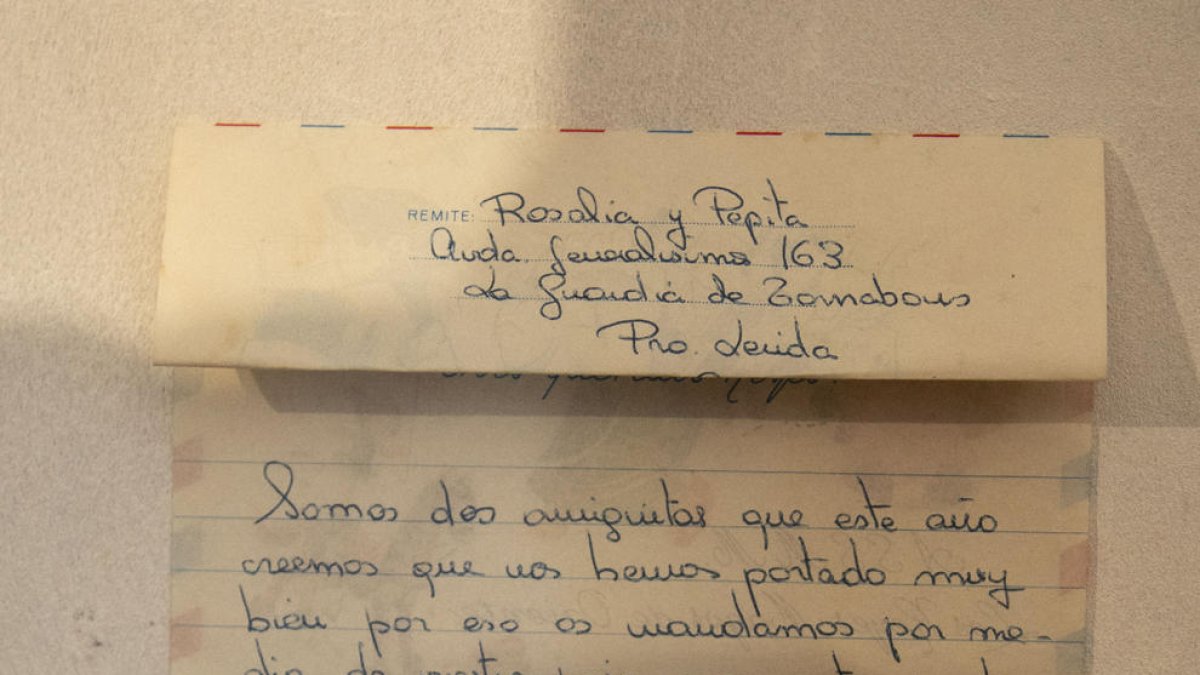 REMITE: Rosalia y Pepita
Avda. Generalisimo 163
La Guardia de Tornabous
Pro. Lerida
Somos dos amiguitas que este año
creemos que nos hemos portado muy
bien por eso os mandamos por me-